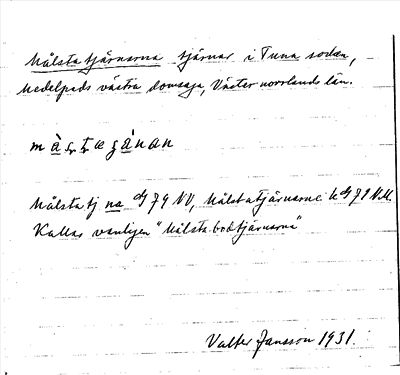 Målstatjärnarna tjärnar i Tuna socken,
Medelpads västra domsaga, Västernorrlands län.
Målstatj na 79 NV, Målstatjärnarne k 79 N.V.
Kallas vanligen "Målsta bodtjärnarna"
Valter Jansson 1931.